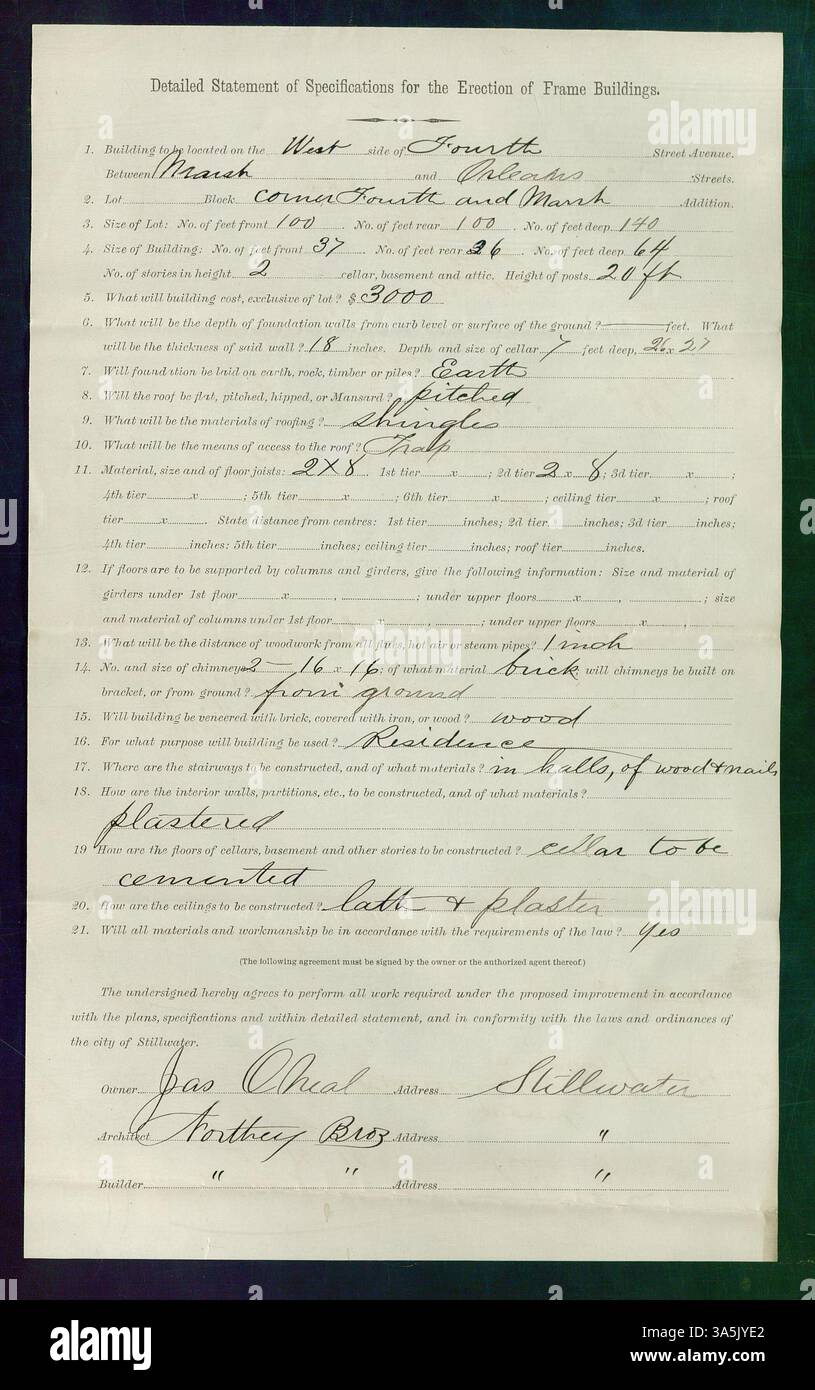 Detailed Statement of Specifications for the Erection of Frame Buildings.
1. Building to be located on the West side of Fourth Street Avenue.
Between Marsh and Orleans Streets.
2. Lot Block corner Fourth and Marsh Addition.
3. Size of Lot: No. of feet front 100 . No. of feet rear 100 . No. of feet deep 140
4. Size of Building: No. of feet front 37 No. of feet rear 26 No. of feet deep 64
No. of stories in height 2 cellar, basement and attic. Height of posts 20 ft
5. What will building cost, exclusive of lot? $ 3000
6. What will be the depth of foundation walls from curb level or surface of the ground? feet. What
will be the thickness of said wall? 18 inches. Depth and size of cellar 7 feet deep, 26 x 27
7. Will foundation be laid on earth, rock, timber or piles? Earth
8. Will the roof be flat, pitched, hipped, or Mansard? pitched
9. What will be the materials of roofing? shingles
10. What will be the means of access to the roof? Trap
11. Material, size and of floor joists: 2 X 8 . 1st tier x ; 2d tier 2 x 8; 3d tier x ;
4th tier x ; 5th tier x ; 6th tier x ; ceiling tier x ; roof
tier x . State distance from centres: 1st tier inches; 2d tier inches; 3d tier inches;
4th tier inches: 5th tier inches; ceiling tier inches; roof tier inches.
12. If floors are to be supported by columns and girders, give the following information: Size and material of
girders under 1st floor x , ; under upper floors x , ; size
and material of columns under 1st floor x , ; under upper floors x ,
13. What will be the distance of woodwork from all flues, hot air or steam pipes? 1 inch
14. No. and size of chimneys 2 — 16 x 16; of what material brick will chimneys be built on
bracket, or from ground? from ground
15. Will building be veneered with brick, covered with iron, or wood? wood
16. For what purpose will building be used? Residence
17. Where are the stairways to be constructed, and of what materials? in halls, of wood & nails
18. How are the interior walls, partitions, etc., to be constructed, and of what materials?
plastered
19 How are the floors of cellars, basement and other stories to be constructed? cellar to be
cemented
20. How are the ceilings to be constructed? lath & plaster
21. Will all materials and workmanship be in accordance with the requirements of the law? yes
(The following agreement must be signed by the owner or the authorized agent thereof.)
The undersigned hereby agrees to perform all work required under the proposed improvement in accordance
with the plans, specifications and within detailed statement, and in conformity with the laws and ordinances of
the city of Stillwater.
Owner Jas O Neal Address Stillwater
Architect Northey Bros Address "
Builder " " Address "
alamy
Image ID: 3A5JYE2
www.alamy.com